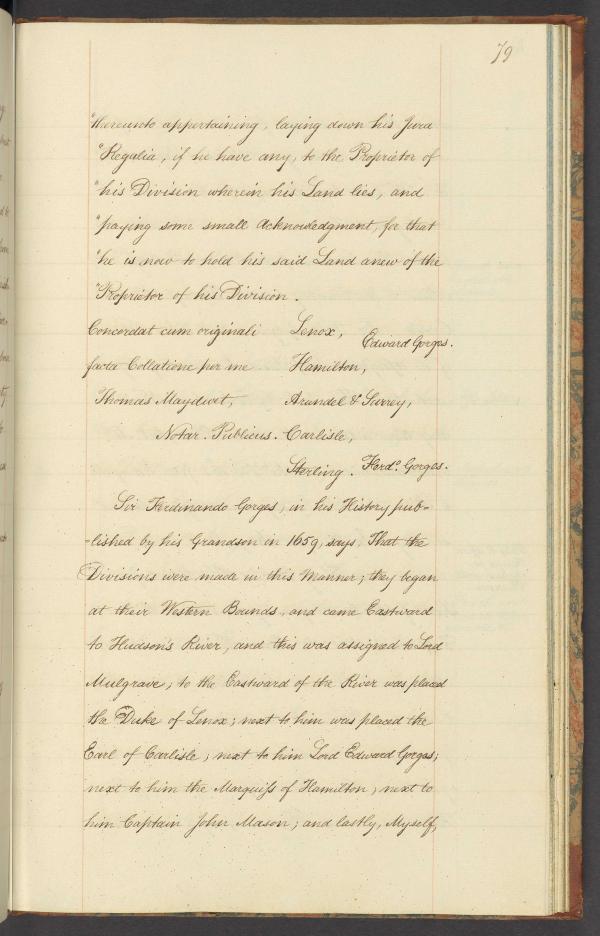 79
"thereunto appertaining, laying down his Jura
"Regalia, if he have any, to the Proprietor of
"his Division wherein his Land lies, and
"paying some small Acknowledgment, for that
"he is now to hold his said Land anew of the
"Proprietor of his Division.
Concordat cum originali Lenox, Edward Gorges.
facta Collatione per me Hamilton,
Thomas Maydwell, Arundel & Surrey,
Notar. Publicus. Carlisle,
Sterling. Ferdo. Gorges.
Sir Ferdinando Gorges, in his History pub-
-lished by his Grandson in 1659, says, That the
Divisions were made in this Manner; they began
at their Western Bounds, and came Eastward
to Hudson's River, and this was assigned to Lord
Mulgrave; to the Eastward of the River was placed
the Duke of Lenox; next to him was placed the
Earl of Carlisle; next to him Lord Edward Gorges;
next to him the Marquiss of Hamilton; next to
him Captain John Mason; and lastly, Myself,